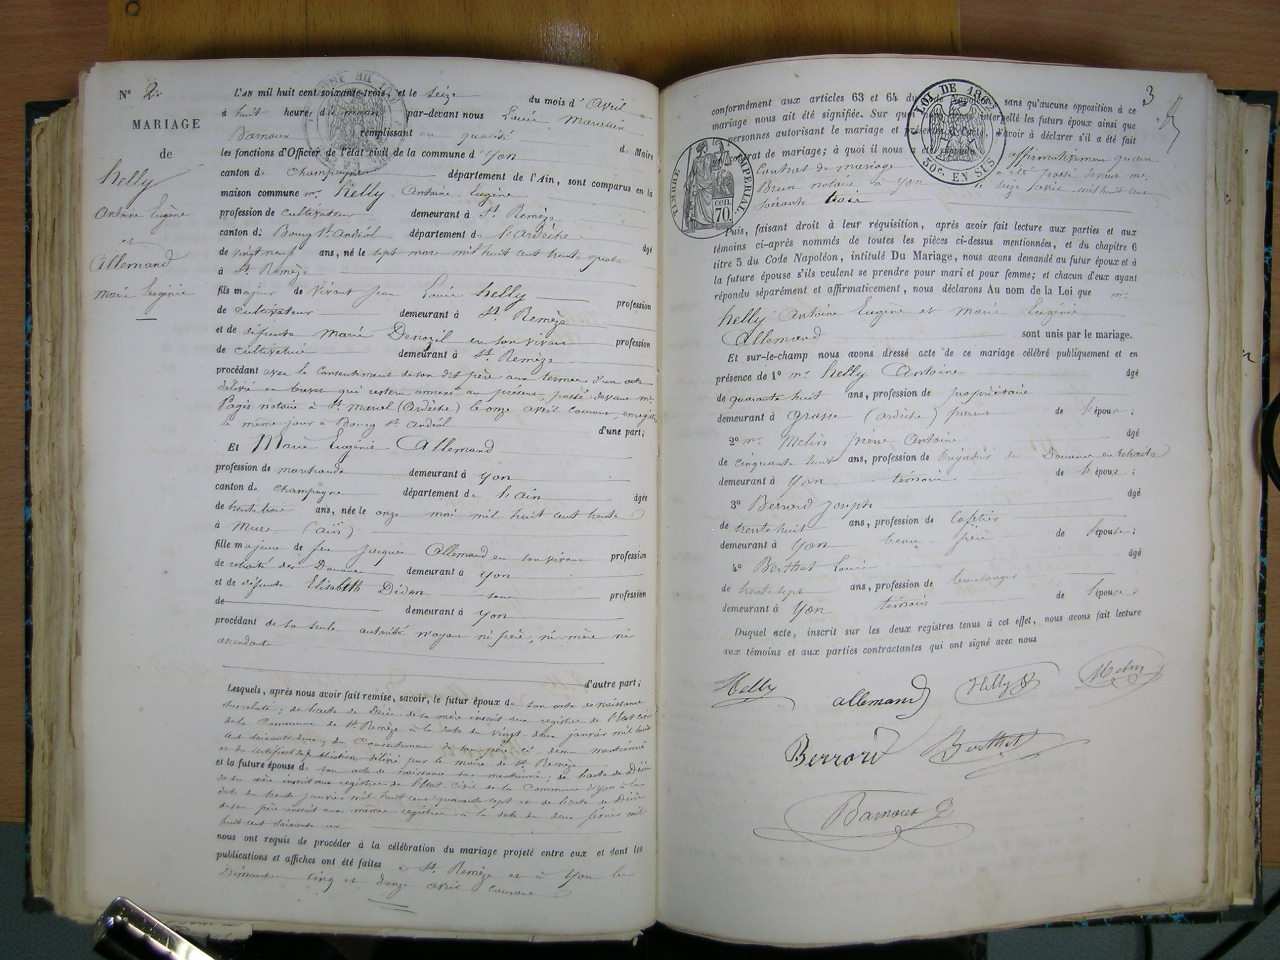 N° 2
MARIAGE
de
Helly
Antoine Eugène
et
Allemand
Marie Eugénie
L'an mil huit cent soixante-trois, et le seize du mois d'Avril
à huit heures du matin par-devant nous Louis Marcelin
Barnoux remplissant en qualité de Maire
les fonctions d'Officier de l'état civil de la commune d'Yon
canton de Champagne département de l'Ain, sont comparus en la
maison commune mr. Helly Antoine Eugène
profession de Cultivateur demeurant à St Remèze
canton d Bourg St Andéol département de l'Ardèche âgé
de vingt neuf ans, né le sept mars mil huit cent trente quatre
à St Remèze
fils majeur de vivant Jean Louis Helly profession
de cultivateur demeurant à St Remèze
et de défunte Marie en son vivant profession
de cultivatrice demeurant à St Remèze
procédant avec le Consentement de son dit père aux termes d'un acte
délivré en brevet qui restera annexé au présent, passé devant me
Pagès notaire à St Marcel (Ardèche) le onze avril courant, enregistré
le même jour à Bourg St Andéol d'une part;
Et Marie Eugénie Allemand
profession de marchande demeurant à Yon
canton de Champagne département de l'ain âgée
de trente trois ans, née le onze mai mil huit cent trente
à Mure (ain)
fille majeure de feu Jacques Allemand en son vivant profession
de retraité des Douanes demeurant à Yon
et de défunte Elisabeth Didan sans profession
de demeurant à Yon
procédant de sa seule autorité n'ayant ni père, ni mère ni
ascendants
d'autre part;
Lesquels, après nous avoir fait remise, savoir, le futur époux de son acte de naissance
de l'acte de Décès de sa mère inscrit aux registres de l'Etat Civil
de la Commune de St Remèze à la date du vingt deux janvier mil huit
cent soixante deux, du Consentement de son père ci dessus mentionné
et du certificat de publication délivré par le maire de St Remèze
et la future épouse d son acte de naissance sus mentionné; de l'acte de Décès
de sa mère inscrit aux registres de l'Etat Civil de la Commune d'Yon à la
date du trente janvier mil huit cent quarante sept et de l'acte de Décès
de son père inscrit aux mêmes registres à la date du deux février mil
huit cent soixante un
nous ont requis de procéder à la célébration du mariage projeté entre eux et dont les
publications et affiches ont été faites à St Remèze et à Yon les
Dimanches cinq et douze avril courant
3
conformément aux articles 63 et 64 du sans qu'aucune opposition à ce
mariage nous ait été signifiée. Sur quoi interpellé les futurs époux ainsi que
personnes autorisant le mariage et d'avoir à déclarer s'il a été fait
contrat de mariage; à quoi il nous a affirmativement qu'un
Contrat de mariage a été passé devant me
Brun notaire à Yon le seize avril mil huit cent
soixante trois
Puis, faisant droit à leur réquisition, après avoir fait lecture aux parties et aux
témoins ci-après nommés de toutes les pièces ci-dessus mentionnées, et du chapitre 6
titre 5 du Code Napoléon, intitulé Du Mariage, nous avons demandé au futur époux et à
la future épouse s'ils veulent se prendre pour mari et pour femme; et chacun d'eux ayant
répondu séparément et affirmativement, nous déclarons Au nom de la Loi que mr.
Helly Antoine Eugène et Marie Eugénie
Allemand sont unis par le mariage.
Et sur-le-champ nous avons dressé acte de ce mariage célébré publiquement et en
présence de 1° mr. Helly Antoine âgé
de quarante huit ans, profession de propriétaire
demeurant à (ardèche) de l'époux;
2° mr. Antoine âgé
de cinquante huit ans, profession de brigadier des Douanes en retraite
demeurant à Yon témoin de l'époux;
3° Berrard Joseph âgé
de trente huit ans, profession de Cafetier
demeurant à Yon beau frère de l'épouse;
4° Berthet Louis âgé
de trente sept ans, profession de boulanger
demeurant à Yon témoin de l'épouse
Duquel acte, inscrit sur les deux registres tenus à cet effet, nous avons fait lecture
aux témoins et aux parties contractantes qui ont signé avec nous
Helly allemand Helly
Berrard Berthet
Barnoux
LOI DE 1862
50c. EN SUS
TIMBRE IMPERIAL
cen. 70